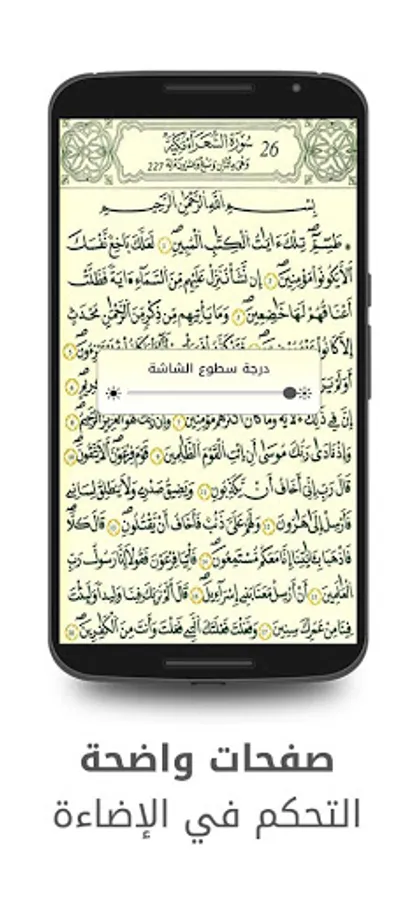 سورة الشعراء مكية 26
وهي مائتان وسبع وعشرون آية 227
بِسْمِ اللَّهِ الرَّحْمَٰنِ الرَّحِيمِ
* طَسِمِّ تِلْكَ ءَايَٰتُ الْكِتَٰبِ الْمُبِينِ لَعَلَّكَ بَٰخِعٌ نَّفْسَكَ
أَلَّا يَكُونُوا مُؤْمِنِينَ إِن نَّشَأْ نُنَزِّلْ عَلَيْهِم مِّنَ السَّمَاءِ ءَايَةً فَظَلَّتْ
أَعْنَٰقُهُمْ لَهَا خَٰضِعِينَ وَمَا يَأْتِيهِم مِّن ذِكْرٍ مِّنَ الرَّحْمَٰنِ مُحْدَثٍ
إِلَّا كَانُوا
أَوَلَمْ
درجة سطوع الشاشة
إِنَّ فِي ذَٰلِكَ لَأٓيَةً وَمَا كَانَ أَكْثَرُهُم مُّؤْمِنِينَ وَإِنَّ رَبَّكَ لَهُوَ الْعَزِيزُ الرَّحِيمُ
وَإِذْ نَادَىٰ رَبُّكَ مُوسَىٰ أَنِ ائْتِ الْقَوْمَ الظَّٰلِمِينَ قَوْمَ فِرْعَوْنَ أَلَا يَتَّقُونَ
قَالَ رَبِّ إِنِّي أَخَافُ أَن يُكَذِّبُونِ وَيَضِيقُ صَدْرِي وَلَا يَنطَلِقُ لِسَانِي
فَأَرْسِلْ إِلَىٰ هَٰرُونَ وَلَهُمْ عَلَيَّ ذَنبٌ فَأَخَافُ أَن يَقْتُلُونِ قَالَ كَلَّا
فَاذْهَبَا بِـَٔايَٰتِنَا إِنَّا مَعَكُم مُّسْتَمِعُونَ فَأْتِيَا فِرْعَوْنَ فَقُولَا إِنَّا رَسُولُ رَبِّ
الْعَٰلَمِينَ أَنْ أَرْسِلْ مَعَنَا بَنِي إِسْرَٰٓءِيلَ قَالَ أَلَمْ نُرَبِّكَ فِينَا وَلِيدًا وَلَبِثْتَ
فِينَا مِنْ عُمُرِكَ سِنِينَ وَفَعَلْتَ فَعْلَتَكَ الَّتِي فَعَلْتَ وَأَنتَ مِنَ الْكَٰفِرِينَ
صفحات واضحة
التحكم في الإضاءة